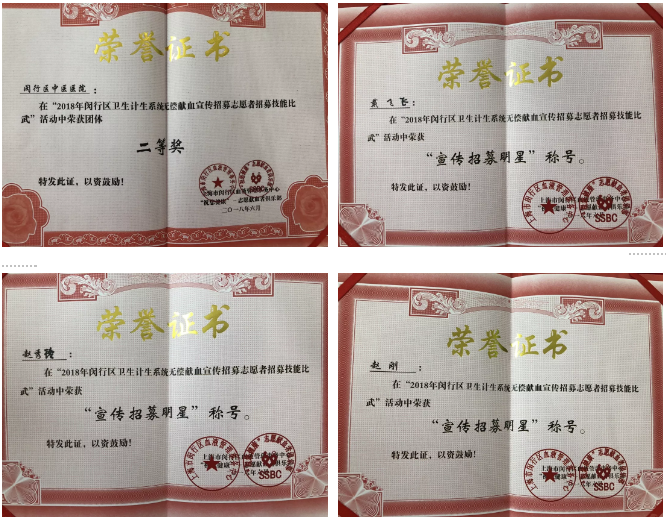 荣誉证书
闵行区中医医院：
在“2018年闵行区卫生计生系统无偿献血宣传招募志愿者招募技能比
武”活动中荣获团体
二等奖
特发此证，以资鼓励！
二〇一八年六月
SSBC
荣誉证书
飞飞：
在“2018年闵行区卫生计生系统无偿献血宣传招募志愿者招募技能比
武”活动中荣获
“宣传招募明星”称号。
特发此证，以资鼓励！
SSBC
荣誉证书
赵秀：
在“2018年闵行区卫生计生系统无偿献血宣传招募志愿者招募技能比
武”活动中荣获
“宣传招募明星”称号。
特发此证，以资鼓励！
SSBC
荣誉证书
赵刚：
在“2018年闵行区卫生计生系统无偿献血宣传招募志愿者招募技能比
武”活动中荣获
“宣传招募明星”称号。
特发此证，以资鼓励！
SSBC